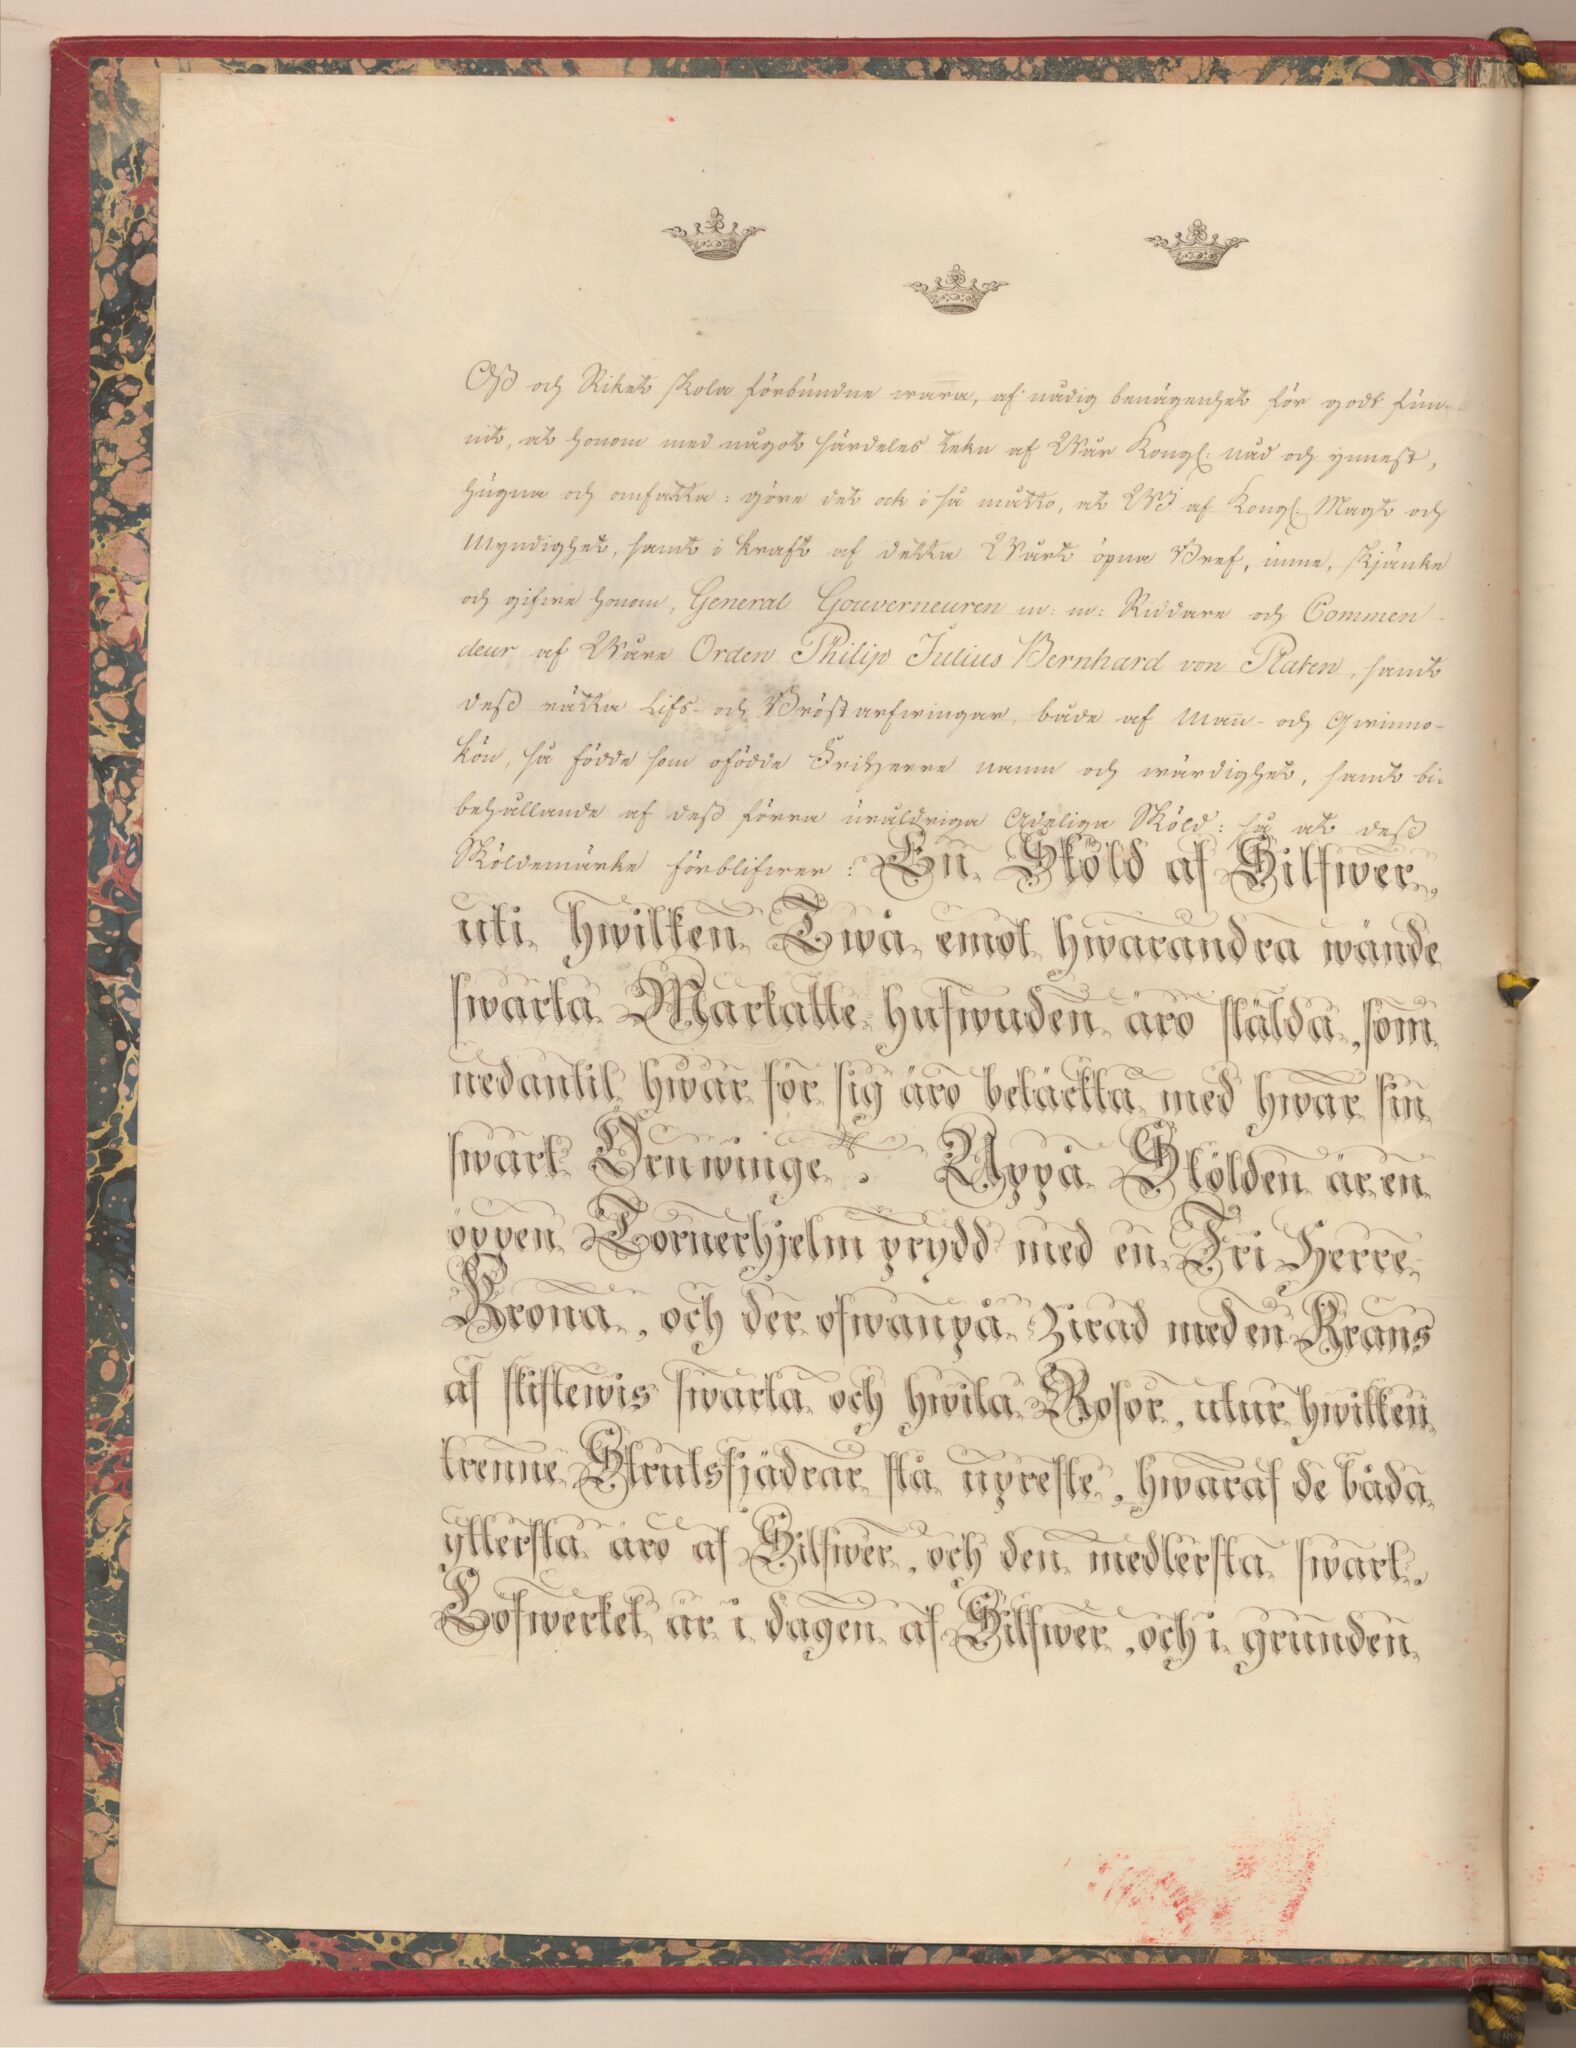 Oß och Riket skola förbundne wara, af nådig benägenhet för godt fun-
nit, at honom med något särdeles tekn af Wår Kongl: nåd och ynnest,
hugna och omfatta: göre det ock i så måtto, at WJ af Kongl: Magt och
Myndighet, samt i kraft af detta Wårt öpna Bref, unne, skjänke
och gifwe honom, General Gouverneuren m: m: Riddare och Commen-
deur af Wåre Orden Philip Julius Bernhard von Platen, samt
deß rätta Lifs- och Bröstarfwingar, både af Man- och Qwinno-
kön, så födde som ofödde FriHerre namn och wärdighet, samt bi-
behållande af deß förra uråldriga Adeliga Sköld: så at deß
Sköldemärke förblifwer: En Sköld af Silfwer,
uti hwilken Twå emot hwarandra wände
swarta Markatte hufwuden äro stälda, som
nedantil hwar för sig äro betäckta med hwar sin
swart Örnwinge. Uppå Skölden är en
öppen Tornerhjelm prydd med en Fri Herre
Krona, och der ofwanpå Zirad med en Krans
af skiftewis swarta och hwita Rosor, utur hwilken
trenne Strutsfjädrar stå upreste, hwaraf de båda
yttersta äro af Silfwer, och den medlersta swart.
Löfwerket är i dagen af Silfwer, och i grunden